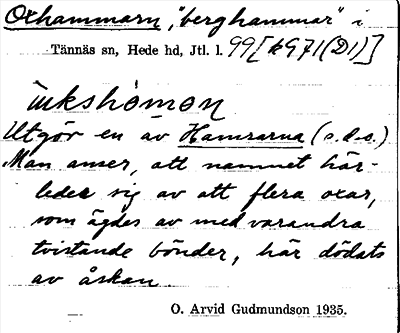 Oxhammarn, "berghammar" i
Tännäs sn, Hede hd, Jtl. l. 99 [k971(D1)]
ùkshòmən
Utgör en av Hamrarna (s.d.o.)
Man anser, att namnet här-
leder sig av att flera oxar,
som ägdes av med varandra
tvistande bönder, här dödats
av åskan.
O. Arvid Gudmundson 1935.